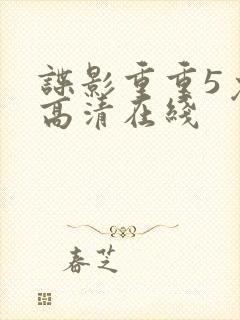 諜影重重5
高清在綫
春芝